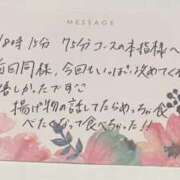 MESSAGE
18時15分 75分コースの本指様へ
前回同様、今回もいっぱい攻めてくれ
嬉しかったです
揚げ物の話してたらめっちゃ食
べたくなって食べちゃった!!